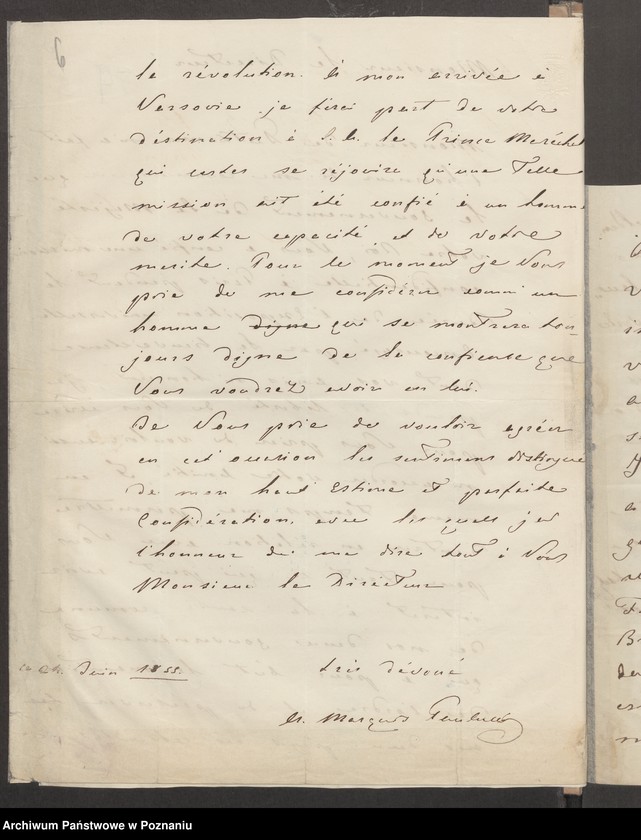 6
la révolution. à mon arrivée à
Varsovie je ferai part de votre
déstination à S. A. le Prince Maréchal
qui certes se réjouira qu'une telle
mission ait été confié à un homme
de votre capacité et de votre
merite. Pour le moment je Vous
prie de me considérer comme un
homme digne qui se montrera tou-
jours digne de la confiance que
Vous voudrez avoir en lui.
Je Vous prie de vouloir agréer
en cet occation les sentiments distingué
de mon haut estime et parfaite
Considération, avec les quels j'ai
l'honneur de me dire tout à Vous
Monsieur le Directeur
Juin 1855.
très dévoué
Marquis Paulucci
Archiwum Państwowe w Poznaniu